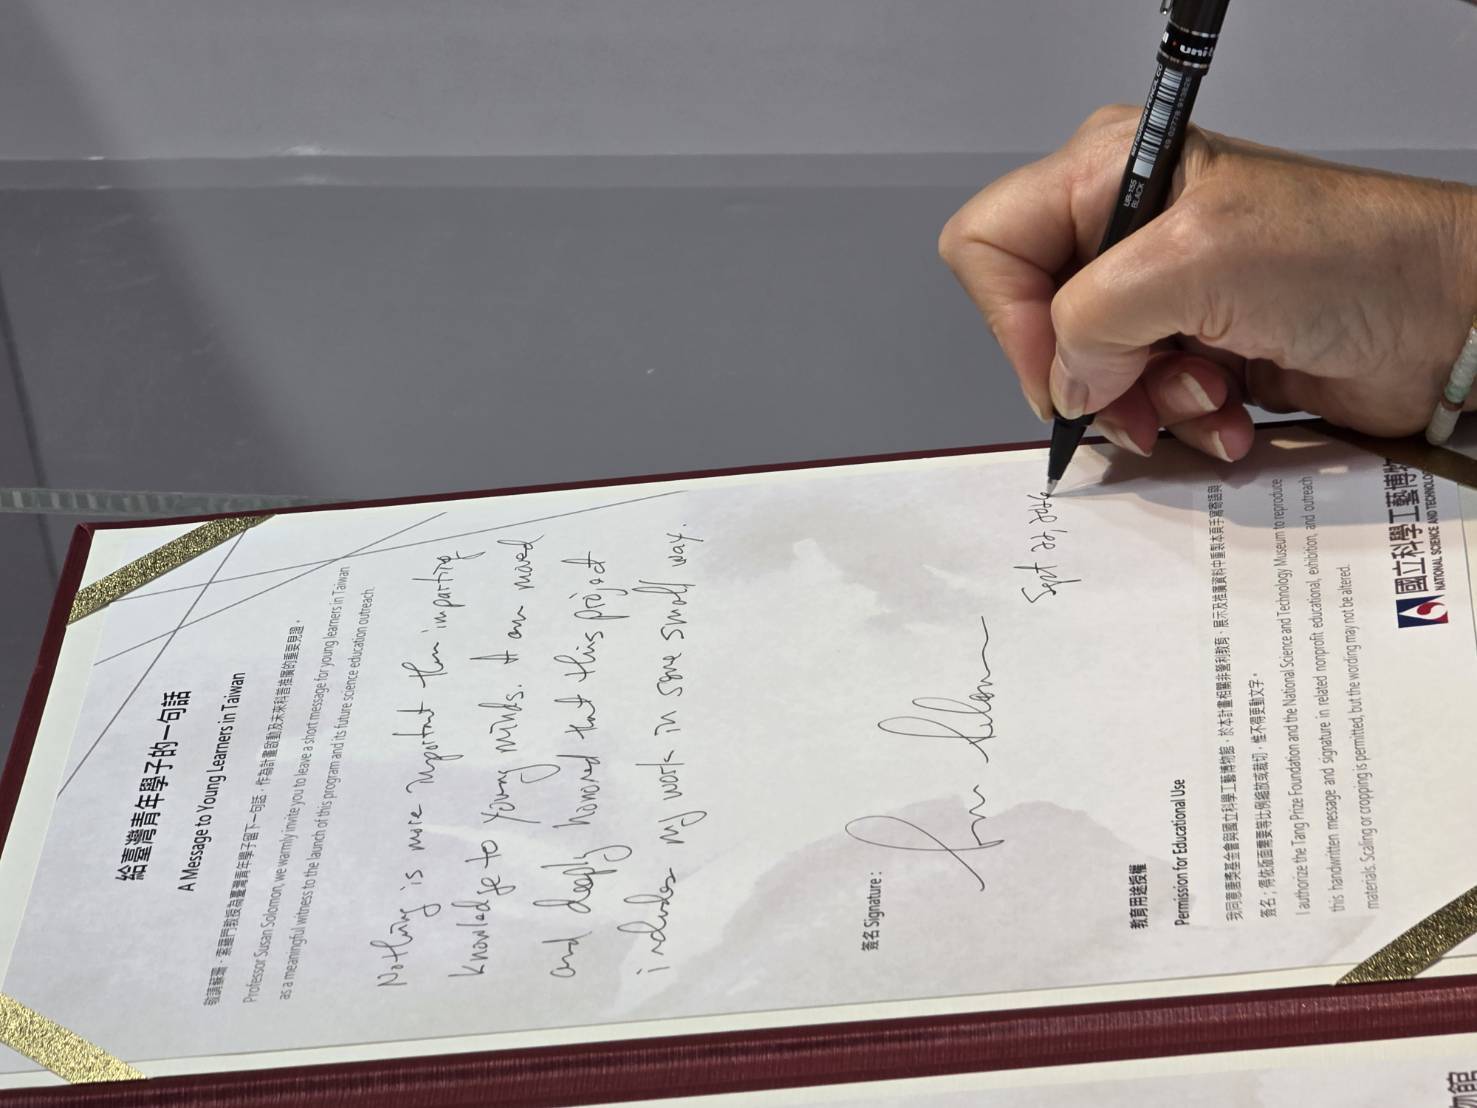 給臺灣青年學子的一句話
A Message to Young Learners in Taiwan
敬請蘇珊．索羅門教授為臺灣青年學子留下一句話，作為計畫啟動及未來科普推廣的重要見證。
Professor Susan Solomon, we warmly invite you to leave a short message for young learners in Taiwan
as a meaningful witness to the launch of this program and its future science education outreach.
Nothing is more important than imparting
knowledge to young minds. I am moved
and deeply honored that this project
includes my work in some small way.
簽名 Signature :
Sept 22, 2026
教育用途授權
Permission for Educational Use
我同意唐獎基金會與國立科學工藝博物館，於本計畫相關非營利教育、展示及推廣資料中重製本頁手寫寄語與
簽名；得依版面需要等比例縮放或裁切，惟不得更動文字。
I authorize the Tang Prize Foundation and the National Science and Technology Museum to reproduce
this handwritten message and signature in related nonprofit educational, exhibition, and outreach
materials. Scaling or cropping is permitted, but the wording may not be altered.
國立科學工藝博物
NATIONAL SCIENCE AND TECHNOLO
uni
MITSUBISHI PENCIL CO
UB-155
BLACK
物館